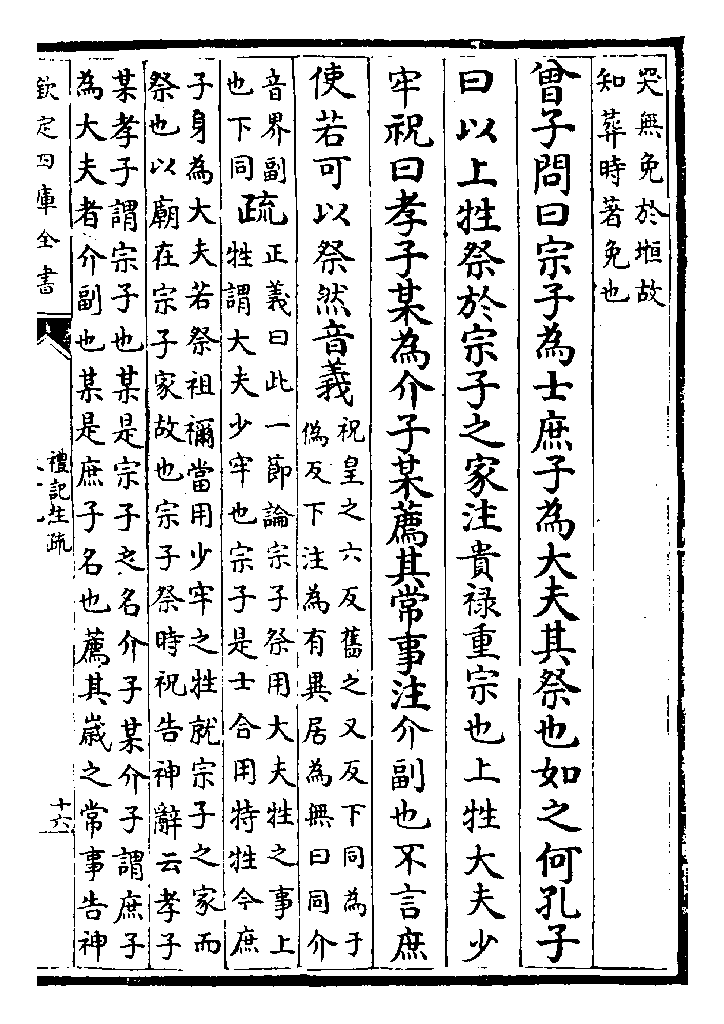 哭無免於堩故
知葬時著免也
曾子問曰宗子為士庶子為大夫其祭也如之何孔子
曰以上牲祭於宗子之家注貴禄重宗也上牲大夫少
牢祝曰孝子某為介子某薦其常事注介副也不言庶
使若可以祭然音義
祝皇之六反舊之又反下同為于
偽反下注為有異居為無曰同介
音界副
也下同
疏
正義曰此一節論宗子祭用大夫牲之事上
牲謂大夫少牢也宗子是士合用特牲今庶
子身為大夫若祭祖禰當用少牢之牲就宗子之家而
祭也以廟在宗子家故也宗子祭時祝告神辭云孝子
某孝子謂宗子也某是宗子之名介子某介子謂庶子
為大夫者介副也某是庶子名也薦其嵗之常事告神
欽定四庫全書
禮記注疏
十六